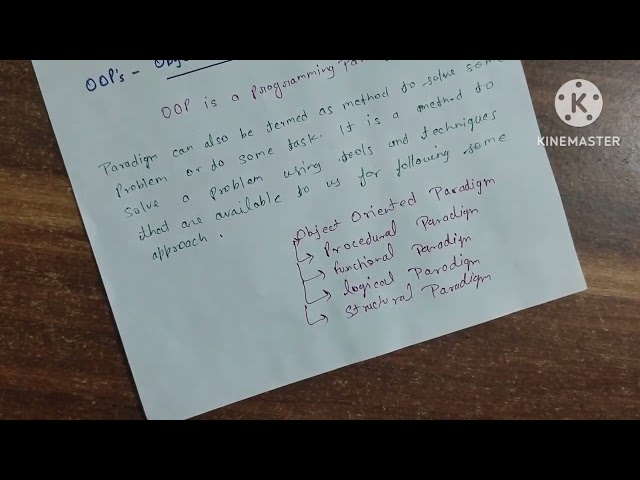 OOP's - Obj
OOP is a Programming Pa
Paradigm can also be termed as method to solve some
Problem or do some task. It is a method to
solve a problem using tools and techniques
that are available to us for following some
approach.
Object Oriented Paradigm
Procedural Paradigm
functional Paradigm
logical Paradigm
Structural Paradigm
KINEMASTER